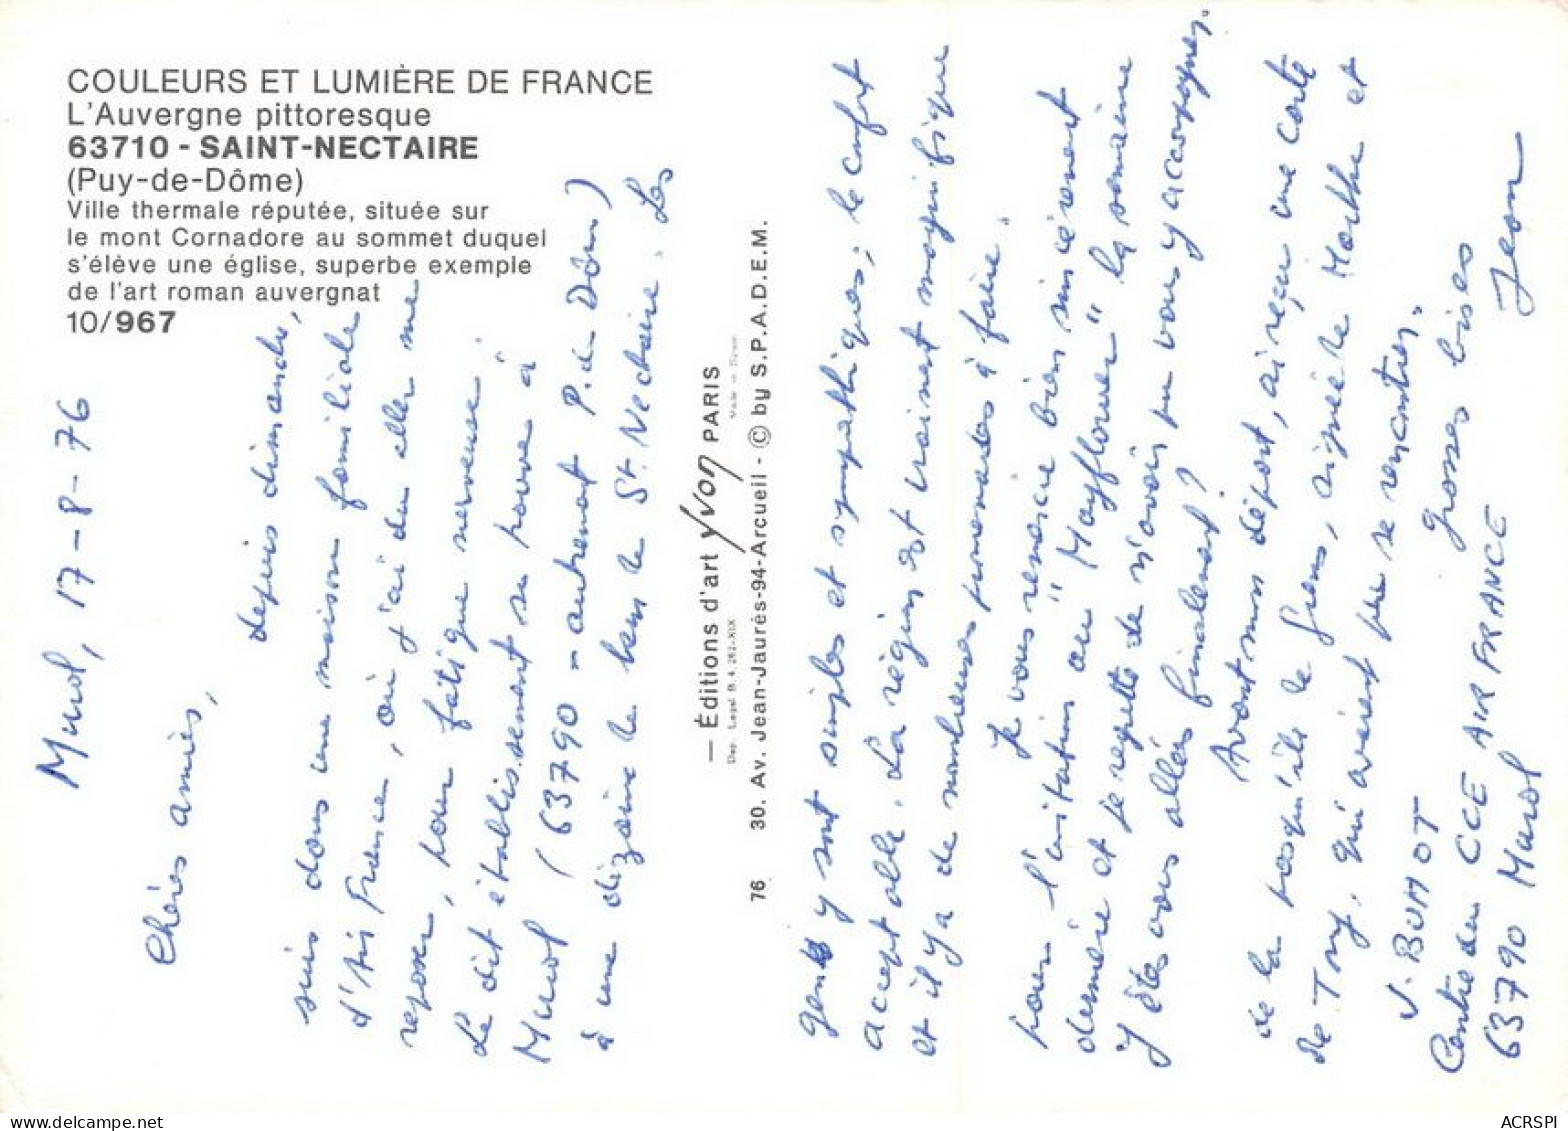 COULEURS ET LUMIÈRE DE FRANCE
L'Auvergne pittoresque
63710 - SAINT-NECTAIRE
(Puy-de-Dôme)
Ville thermale réputée, située sur
le mont Cornadore au sommet duquel
s'élève une église, superbe exemple
de l'art roman auvergnat
10/967
Murol, 17-8-76
Chères amies,
depuis dimanche,
suis dans une maison familiale
d'Air France, où j'ai du aller me
reposer, pour fatigue nerveuse.
Le dit établissement se trouve à
Murol (63790 - autrement P. de Dôme)
à une dizaine de kms de St. Nectaire. Les
— Éditions d'art Yvon PARIS
Dep. Legal B. 4.262-XIX
Made in France
76 30. Av. Jean-Jaurés-94-Arcueil - © by S.P.A.D.E.M.
gens y sont simples et sympathiques; le confort
acceptable. La région est vraiment magnifique
et il y a de nombreuses promenades à faire.
Je vous remercie bien sincèrement
pour l'invitation au "Mayflower" la semaine
dernière et je regrette de n'avoir pu vous y accompagner.
Y êtes vous allées finalement?
Avant mon départ, ai reçu une carte
de la presqu'île de Giens, signée de Marthe et
de Tony, qui avaient pu se rencontrer.
Grosses bises
Jean
J. BUMOT
Centre du CCE AIR FRANCE
63790 Murol
ACRSPI